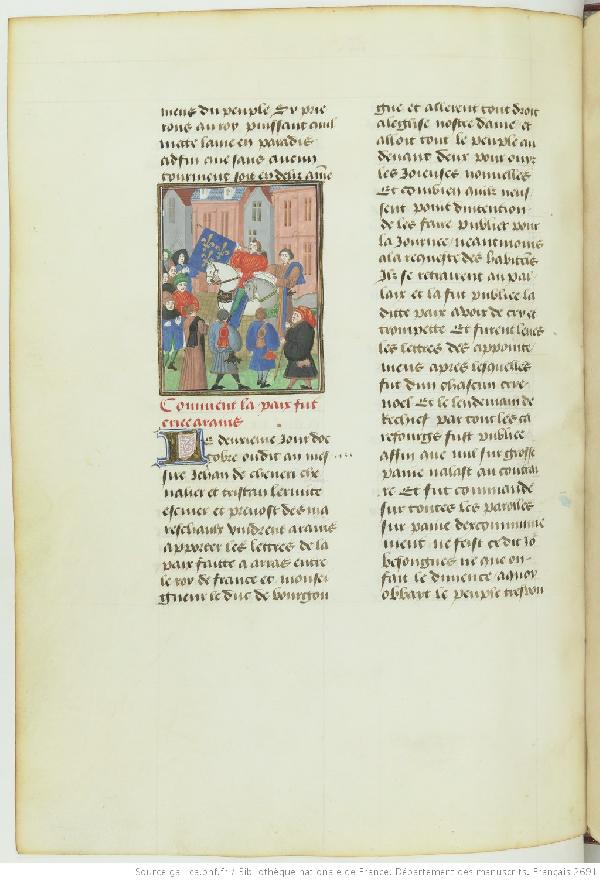 mens du peuple, Sy prie
rons au roy puissant quil
mette lame en paradis
adfin que sans aucun
tourment soit en deux ame
Comment la paix fut
criee a rains
Le deuxieme Jour doc
tobre oudit an mes
sire Jehan de
valier et tristan lermite
escuier et prevost des ma
reschaux vindrent a rains
apporter les lettres de la
paix faitte a arras entre
le roy de france et monsei
gneur le duc de bourgon
gne et allerent tout droit
a leglise nostre dame et
alloit tout le peuple au
devant deux pour ouyr
les Joieuses nouvelles
Et combien quilz neus
sent point dintention
de les faire publier pour
la Journee, neantmoins
a la requeste des habitans
Ilz se retrairent au pal
laix et la fut publiee la
ditte paix a voix de cry et
trompette Et furent leues
les lettres des appointe
mens apres lesquelles
fut dun chascun crie
noel Et le lendemain de
rechief par tous les ca
refourgs fust publie
affin que nul sur grosse
paine nalast au contrai
re Et fut commande
sur toutes les parolles
sur paine dexcommunie
ment ne feist cedit Jo
besongnes ne que on
fait le dimence a quoy
obbayt le peuple
Source gallica.bnf.fr / Bibliothèque nationale de France. Département des manuscrits. Français 2691